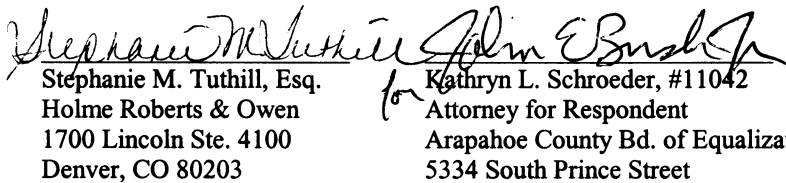 Stephanie M Tuthill John E Bush Jr
for
Stephanie M. Tuthill, Esq.
Holme Roberts & Owen
1700 Lincoln Ste. 4100
Denver, CO 80203
Kathryn L. Schroeder, #11042
Attorney for Respondent
Arapahoe County Bd. of Equaliza
5334 South Prince Street